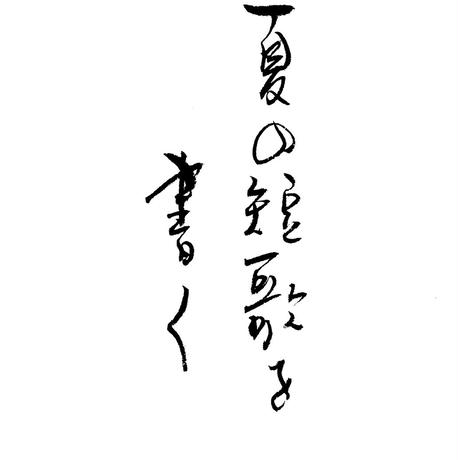 夏の短歌を
書く